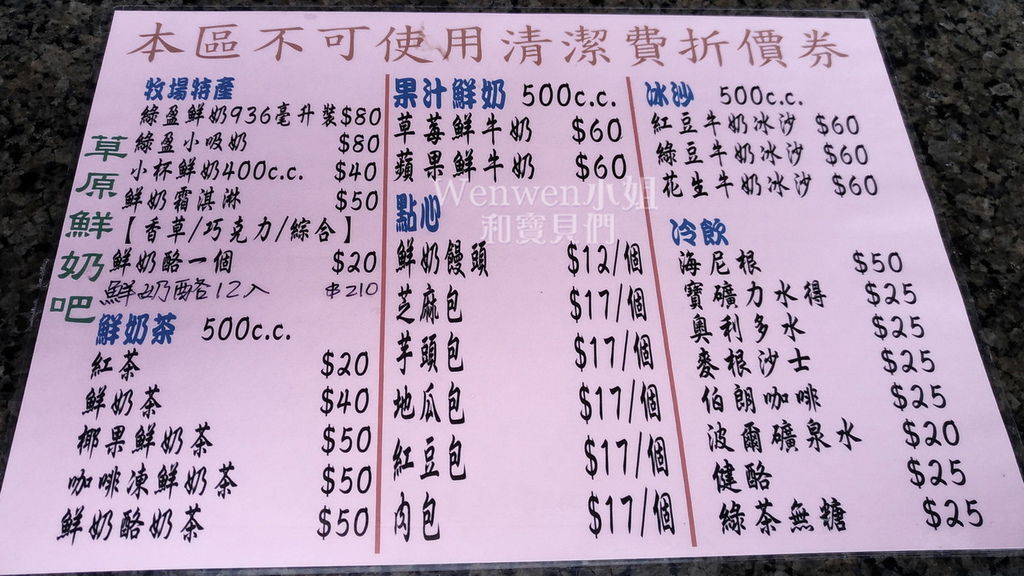 本區不可使用清潔費折價券
草原鮮奶吧
牧場特產
綠盈鮮奶936毫升裝$80
綠盈小吸奶 $80
小杯鮮奶400c.c. $40
鮮奶霜淇淋 $50
【香草/巧克力/綜合】
鮮奶酪一個 $20
鮮奶酪12入 $210
鮮奶茶 500c.c.
紅茶 $20
鮮奶茶 $40
椰果鮮奶茶 $50
咖啡凍鮮奶茶 $50
鮮奶酪奶茶 $50
果汁鮮奶 500c.c.
草莓鮮牛奶 $60
蘋果鮮牛奶 $60
點心
鮮奶饅頭 $12/個
芝麻包 $17/個
芋頭包 $17/個
地瓜包 $17/個
紅豆包 $17/個
肉包 $17/個
冰沙 500c.c.
紅豆牛奶冰沙 $60
綠豆牛奶冰沙 $60
花生牛奶冰沙 $60
冷飲
海尼根 $50
寶礦力水得 $25
奧利多水 $25
麥根沙士 $25
伯朗咖啡 $25
波爾礦泉水 $20
健酪 $25
綠茶無糖 $25
Wenwen小姐
和寶貝們